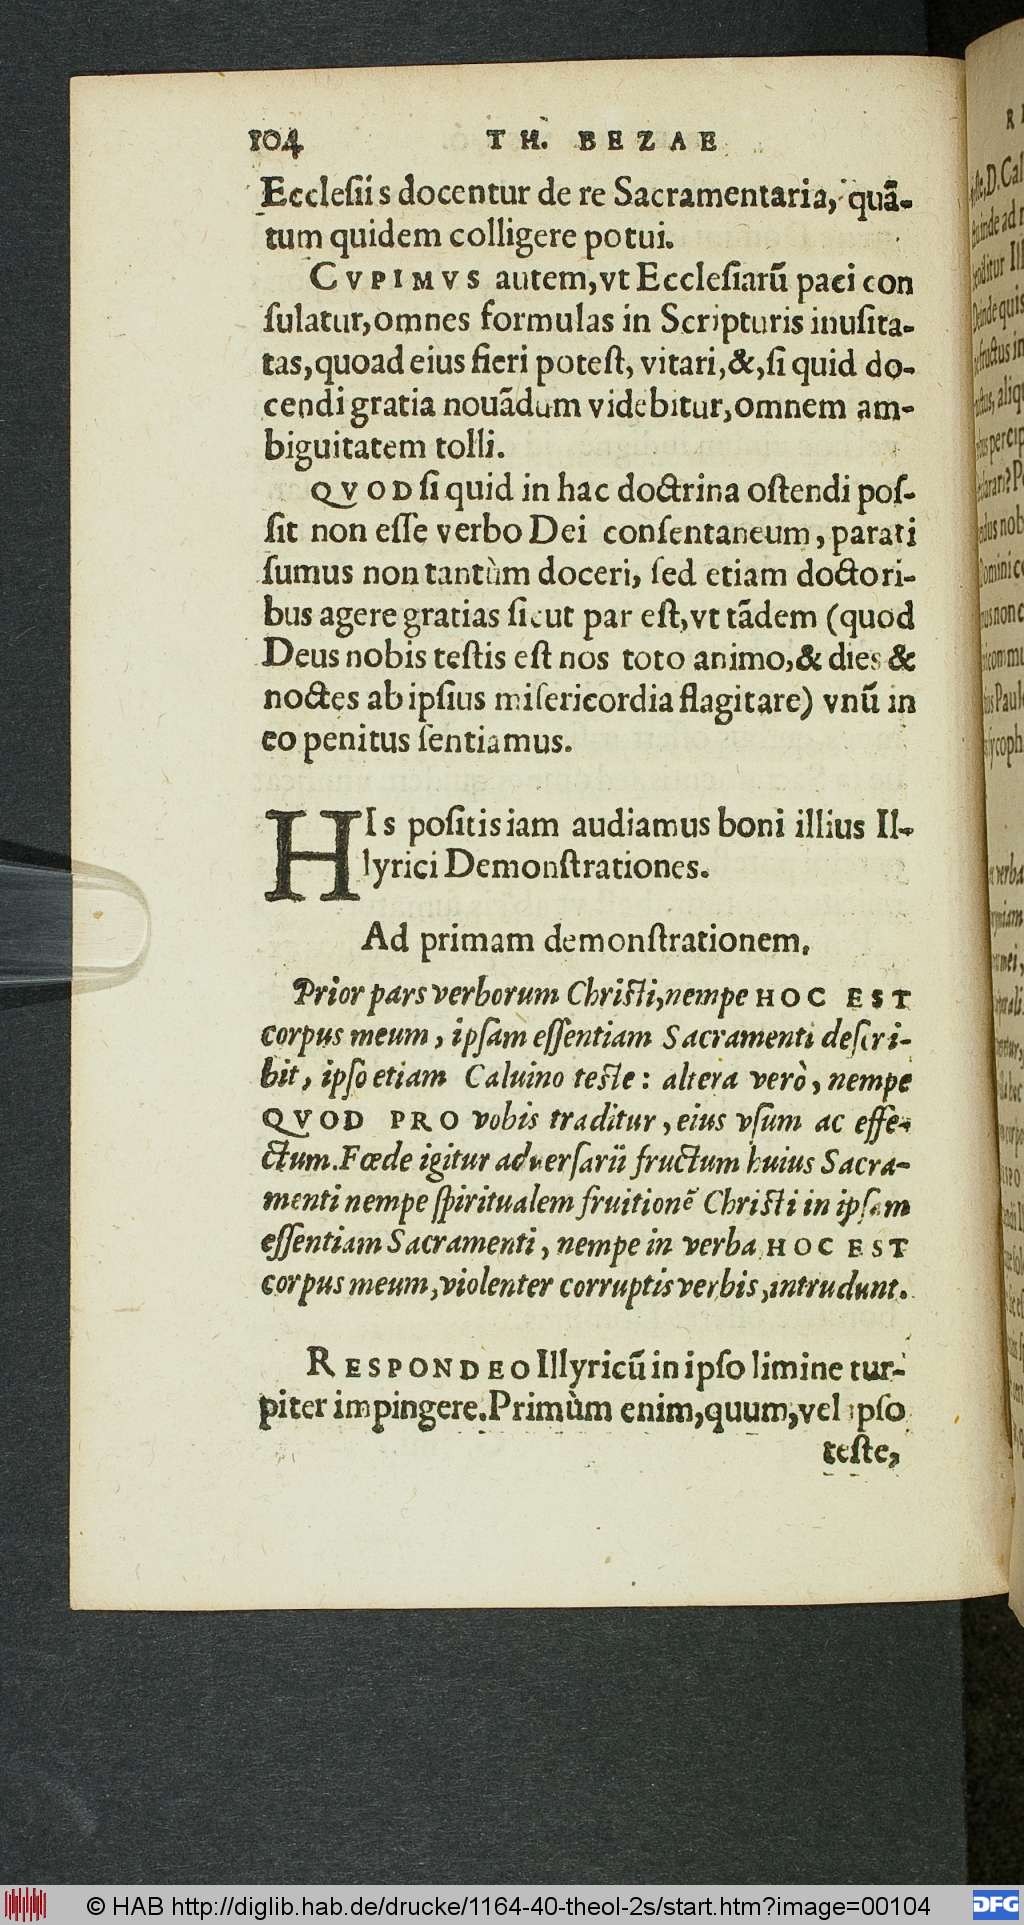 104 TH. BEZAE
Ecclesiis docentur de re Sacramentaria, quã-
tum quidem colligere potui.
CVPIMVS autem, vt Ecclesiarũ paci con
sulatur, omnes formulas in Scripturis inusita-
tas, quoad eius fieri potest, vitari, &, si quid do-
cendi gratia nouãdum videbitur, omnem am-
biguitatem tolli.
QVOD si quid in hac doctrina ostendi pos-
sit non esse verbo Dei consentaneum, parati
sumus non tantùm doceri, sed etiam doctori-
bus agere gratias sicut par est, vt tãdem (quod
Deus nobis testis est nos toto animo, & dies &
noctes ab ipsius misericordia flagitare) vnũ in
eo penitus sentiamus.
HIs positis iam audiamus boni illius Il-
lyrici Demonstrationes.
Ad primam demonstrationem.
Prior pars verborum Christi, nempe HOC EST
corpus meum, ipsam essentiam Sacramenti descri-
bit, ipso etiam Caluino teste: altera verò, nempe
QVOD PRO vobis traditur, eius vsum ac effe-
ctum. Fœde igitur aduersarii fructum huius Sacra-
menti nempe spiritualem fruitionẽ Christi in ipsam
essentiam Sacramenti, nempe in verba HOC EST
corpus meum, violenter corruptis verbis, intrudunt.
RESPONDEO Illyricũ in ipso limine tur-
piter impingere. Primùm enim, quum, vel ipso
teste,
© HAB http://diglib.hab.de/drucke/1164-40-theol-2s/start.htm?image=00104
DFG